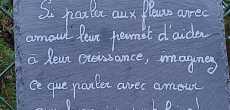 Si parler aux fleurs avec
amour leur permet d'aider
à leur croissance, imaginez
ce que parler avec amour